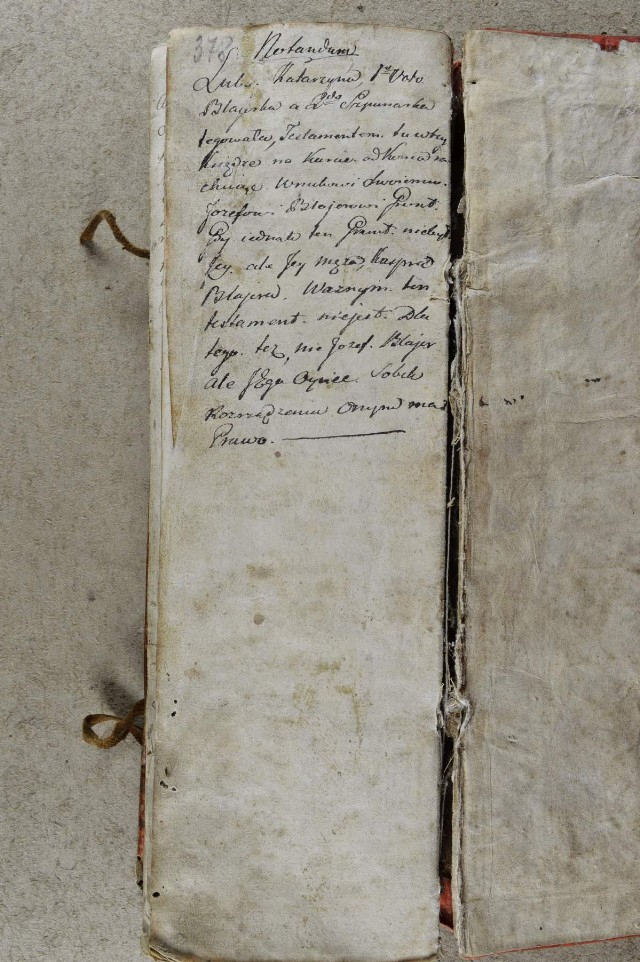 378
Nottandum
Lubo. Katarzyna, 1mo Voto
Błajerka a 2do Szpunarka
legowała, Testamentem. tu w tey
Książce na Karcie
Wnukowi Swoiemu.
Jozefowi Błajerowi Grunt.
Gdy iednak ten Grunt. niebył
Jey. ale Jey męża, Kaspra
Błajera. Waznym. ten
testament. niejest. Dla
tego. też, nie Jozef. Błajer
ale Jego Oyciec. Sobek
Rozrządzenia Onym ma
Prawo.